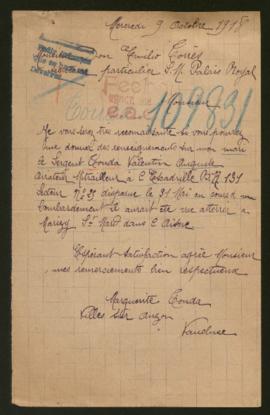 Mercredi 9 Octobre 1918
Don Emilio Torrès
particulier S.M. Palais Royal
109831
Monsieur
Je vous serez très reconnaissante si vous pourriez
me donner des renseignements sur mon mari
le Sergent Conda Valentin Auguste
Aviateur Mitrailleur à l'Escadrille Br 131
Secteur N° disparue le 31 Mai au cours d'un
bombardement il aurait été vue atterrir à
Marizy Ste dans l'Aisne
Espérant Satisfaction agrée Monsieur
mes remerciements bien respectueux
Marguerite Conda
Villes sur Auzon
Vaucluse